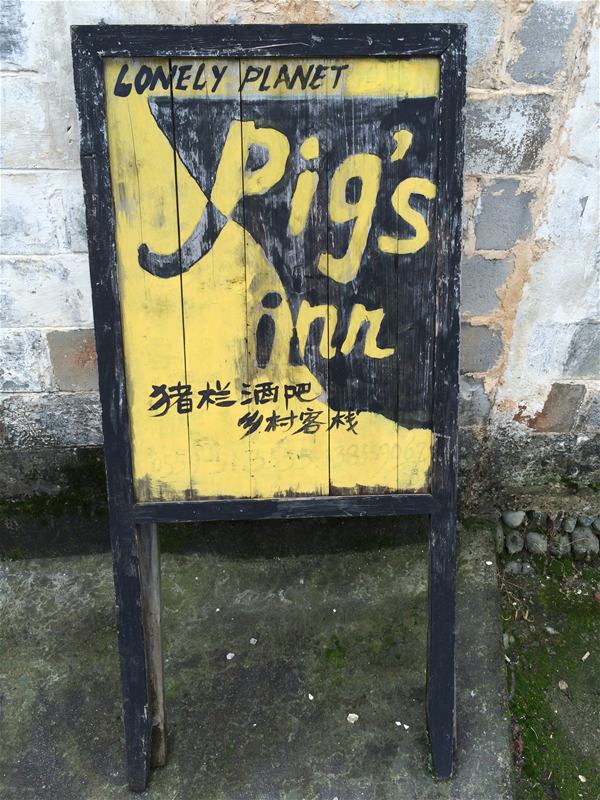 LONELY PLANET
Pig's
inn
猪栏酒吧
乡村客栈